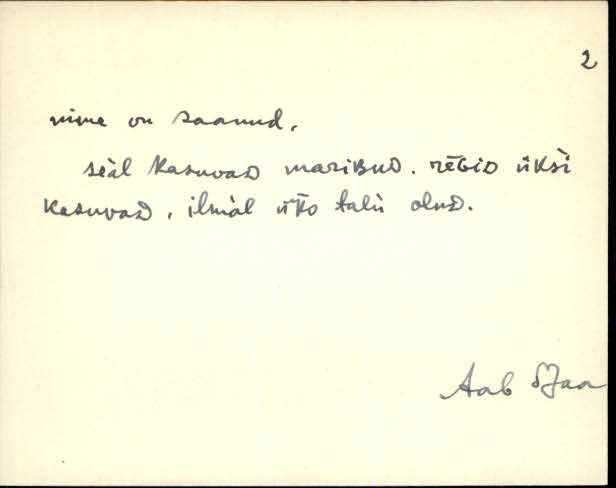 2
nime on saanud.
seäl kasuvaD mariBuD. rēBiD üksi
kasuvaD, ilmäl üks talu olnD.
Aab